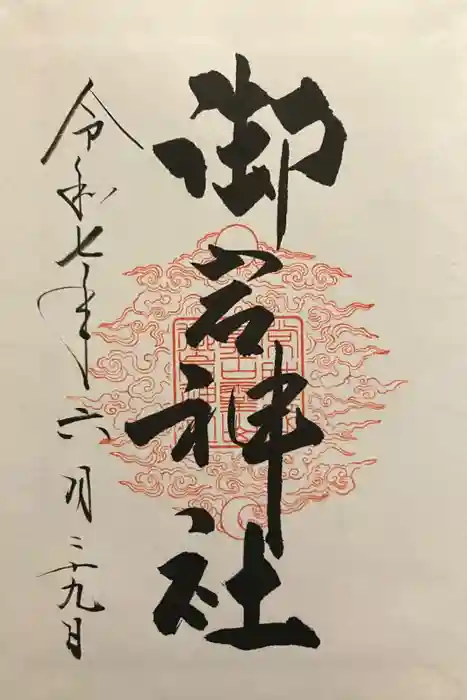 御岩神社
令和七年六月二十九日